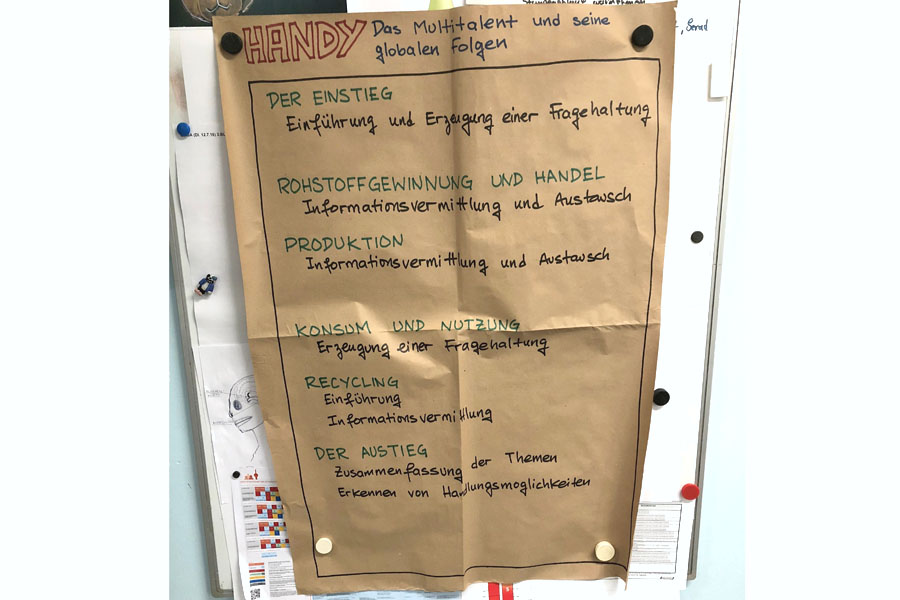 HANDY Das Multitalent und seine
globalen Folgen
DER EINSTIEG
Einführung und Erzeugung einer Fragehaltung
ROHSTOFFGEWINNUNG UND HANDEL
Informationsvermittlung und Austausch
PRODUKTION
Informationsvermittlung und Austausch
KONSUM UND NUTZUNG
Erzeugung einer Fragehaltung
RECYCLING
Einführung
Informationsvermittlung
DER AUSTIEG
Zusammenfassung der Themen
Erkennen von Handlungsmoglichkeiten